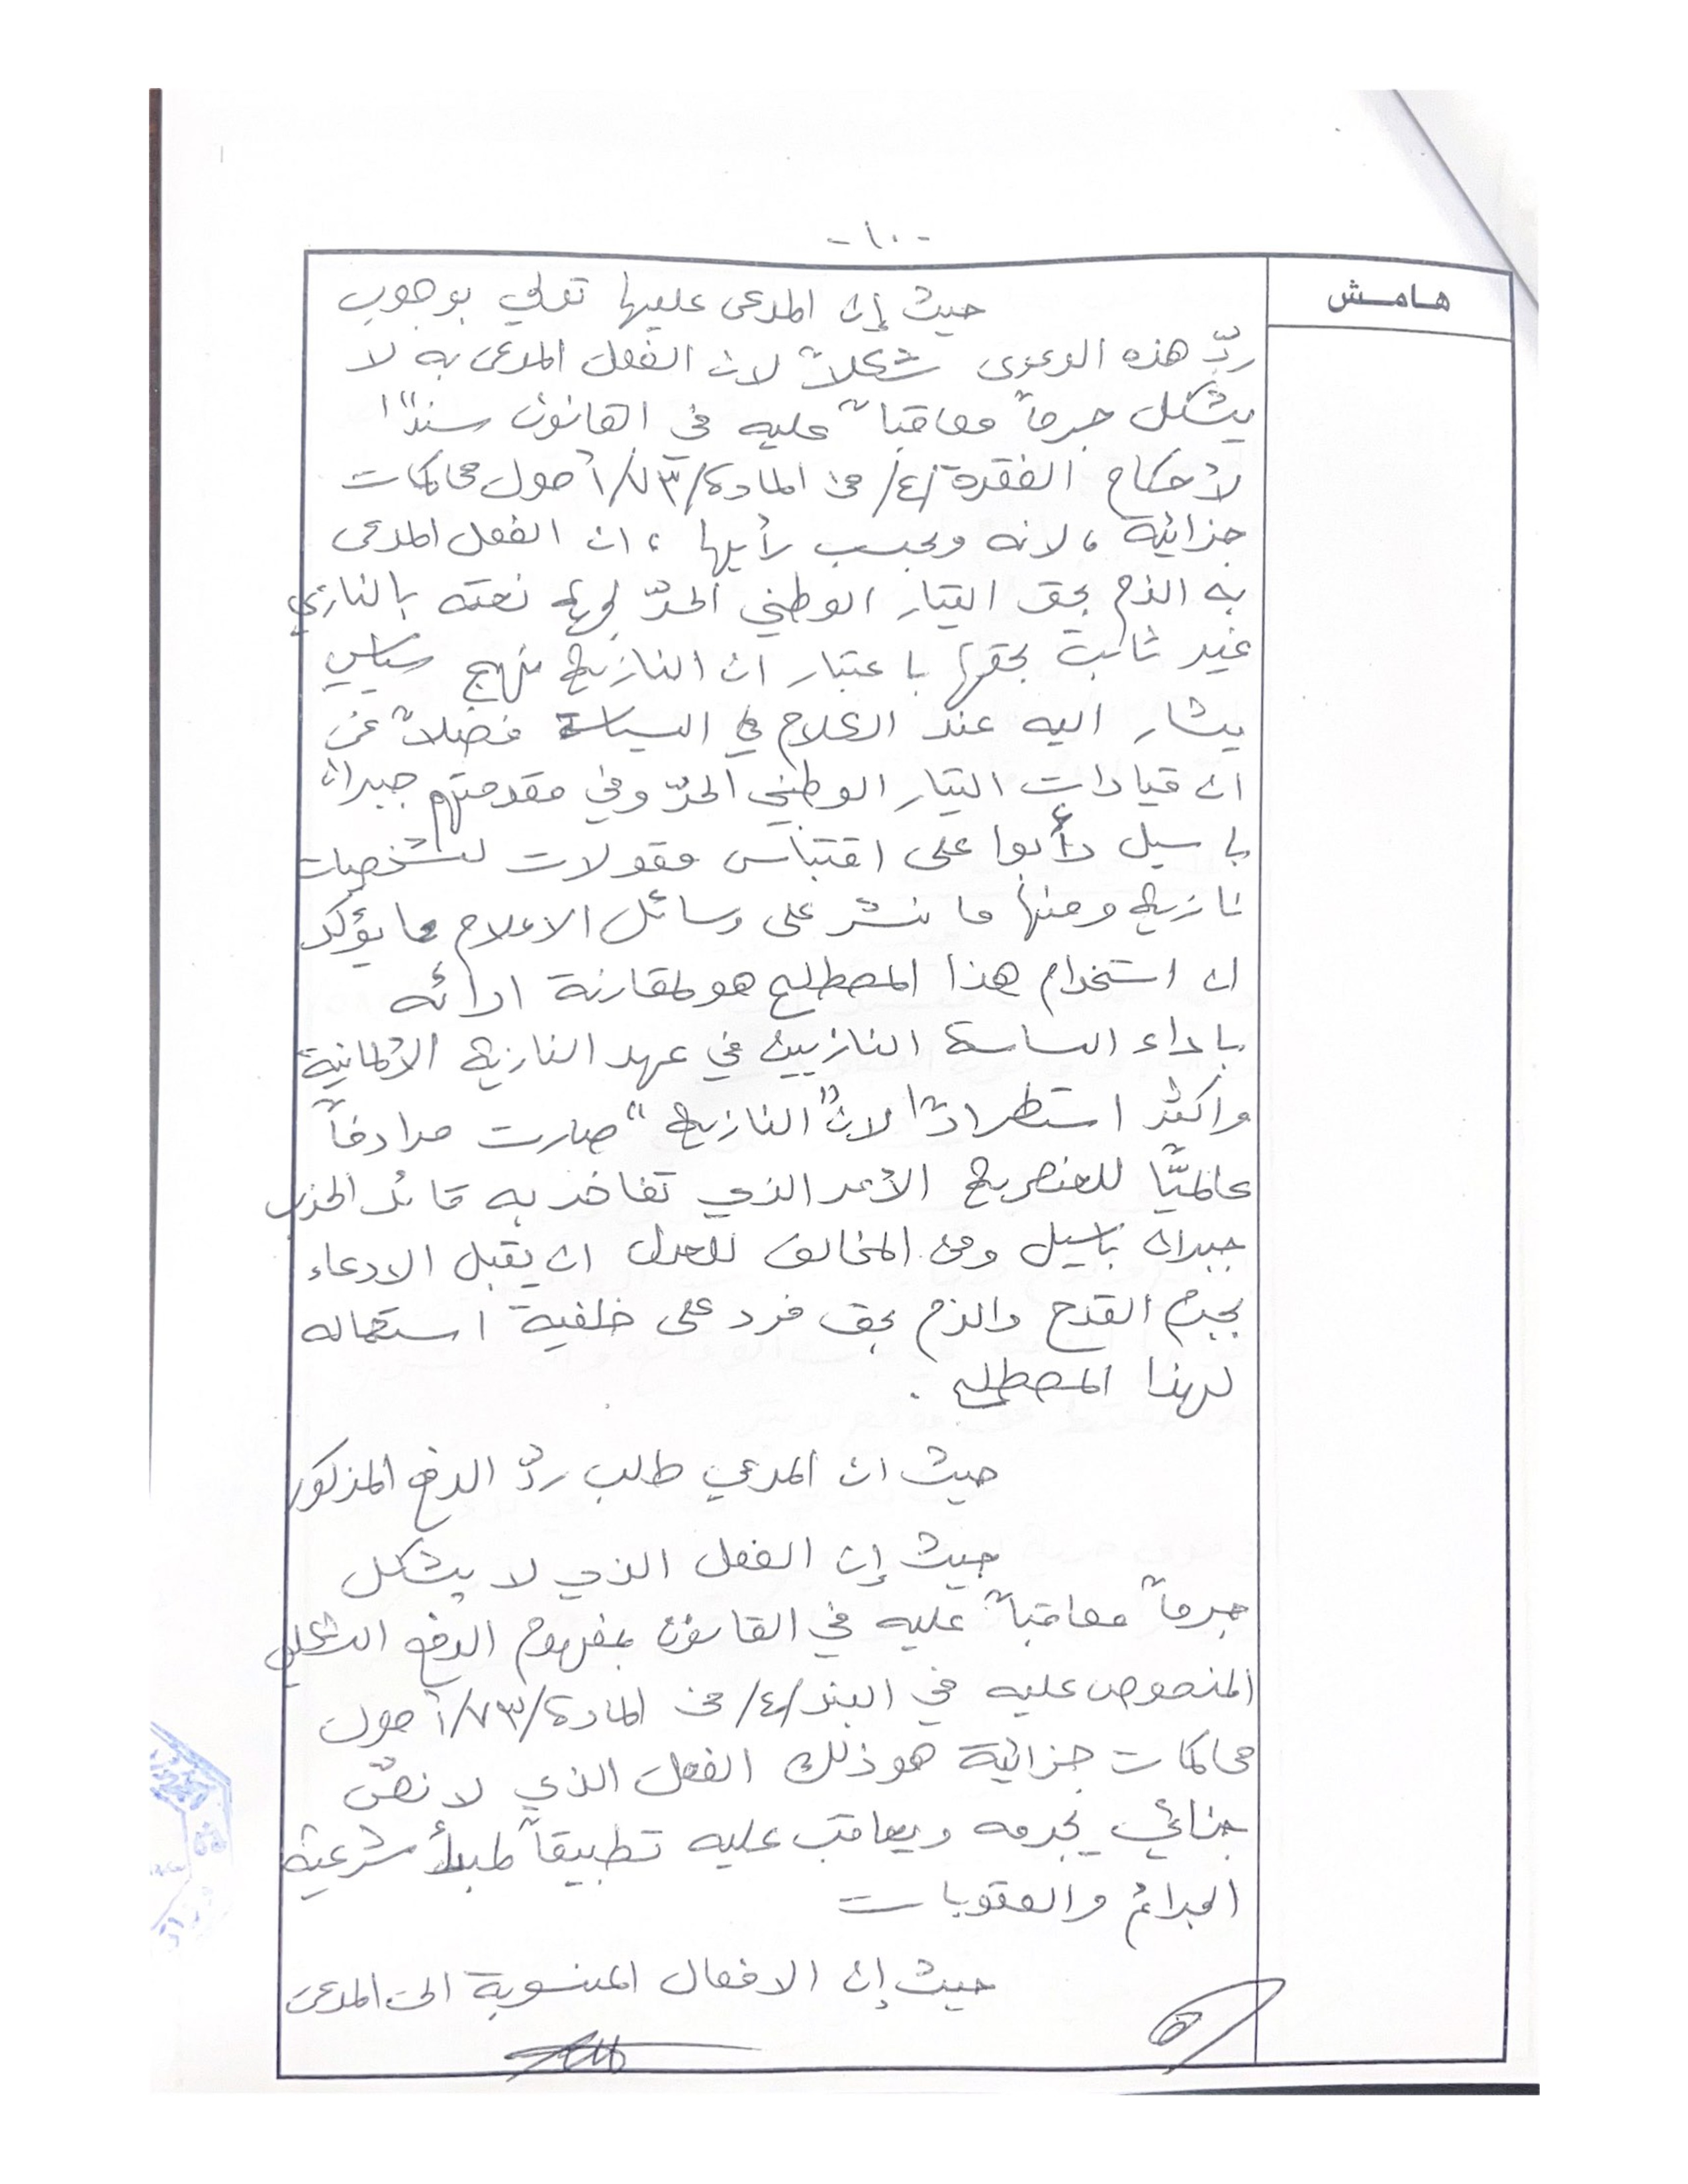 -١٠-
هامش
حيث إن المدعى عليها تدلي بوجوب
ردّ هذه الدعوى شكلاً لان الفعل المدعى به لا
يشكل جرماً معاقباً عليه في القانون سنداً
لأحكام الفقرة /٤/ من المادة /٧٣/ أصول محاكمات
جزائية ، لانه وبحسب رأيها ، ان الفعل المدعى
به الذم بحق التيار الوطني الحرّ لجهة نعته بالنازي
غير ثابت بحقها باعتبار ان النازية نهج سياسي
يشار اليه عند الكلام في السياسة فضلاً عن
ان قيادات التيار الوطني الحرّ وفي مقدمتهم جبران
باسيل دأبوا على اقتباس مقولات لشخصيات
نازية ومنها ما نشر على وسائل الاعلام ما يؤكد
ان استخدام هذا المصطلح هو لمقارنة ادائه
باداء الساسة النازيين في عهد النازية الألمانية
واكثر استطراداً لان "النازية" صارت مرادفاً
عالميّاً للعنصرية الأمر الذي تفاخر به قائد الحزب
جبران باسيل ومن المخالف للعدل ان يقبل الادعاء
بجرم القدح والذم بحق فرد على خلفية استعماله
لهذا المصطلح .
حيث ان المدعي طلب ردّ الدفع المذكور
حيث إن الفعل الذي لا يشكل
جرماً معاقباً عليه في القانون بمفهوم الدفع الشكلي
المنصوص عليه في البند /٤/ من المادة /٧٣/ أصول
محاكمات جزائية هو ذلك الفعل الذي لا نصّ
جنائي يجرمه ويعاقب عليه تطبيقاً لمبدأ شرعية
الجرائم والعقوبات
حيث إن الافعال المنسوبة الى المدعى